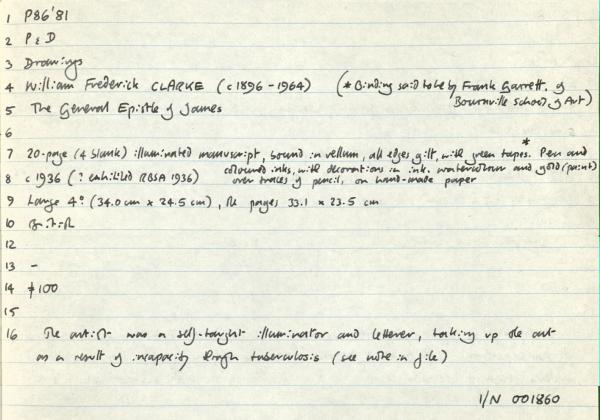 1 P86'81
2 P & D
3 Drawings
4 William Frederick CLARKE (c1896 - 1964) (* Binding said to be by Frank Garrett. of
Bournville School of Art)
5 The General Epistle of James
6
7 20-page (4 blank) illuminated manuscript, bound in vellum, all edges gilt, with green tapes.* Pen and
coloured inks, with decorations in ink, watercolour and gold (paint)
8 c 1936 (? exhibited RBSA 1936) over traces of pencil, on hand-made paper
9 Large 4° (34.0 cm x 24.5 cm), the pages 33.1 x 23.5 cm
10 British
12
13 -
14 £100
15
16 The artist was a self-taught illuminator and letterer, taking up the art
as a result of incapacity through tuberculosis (see note in file)
I/N 001860